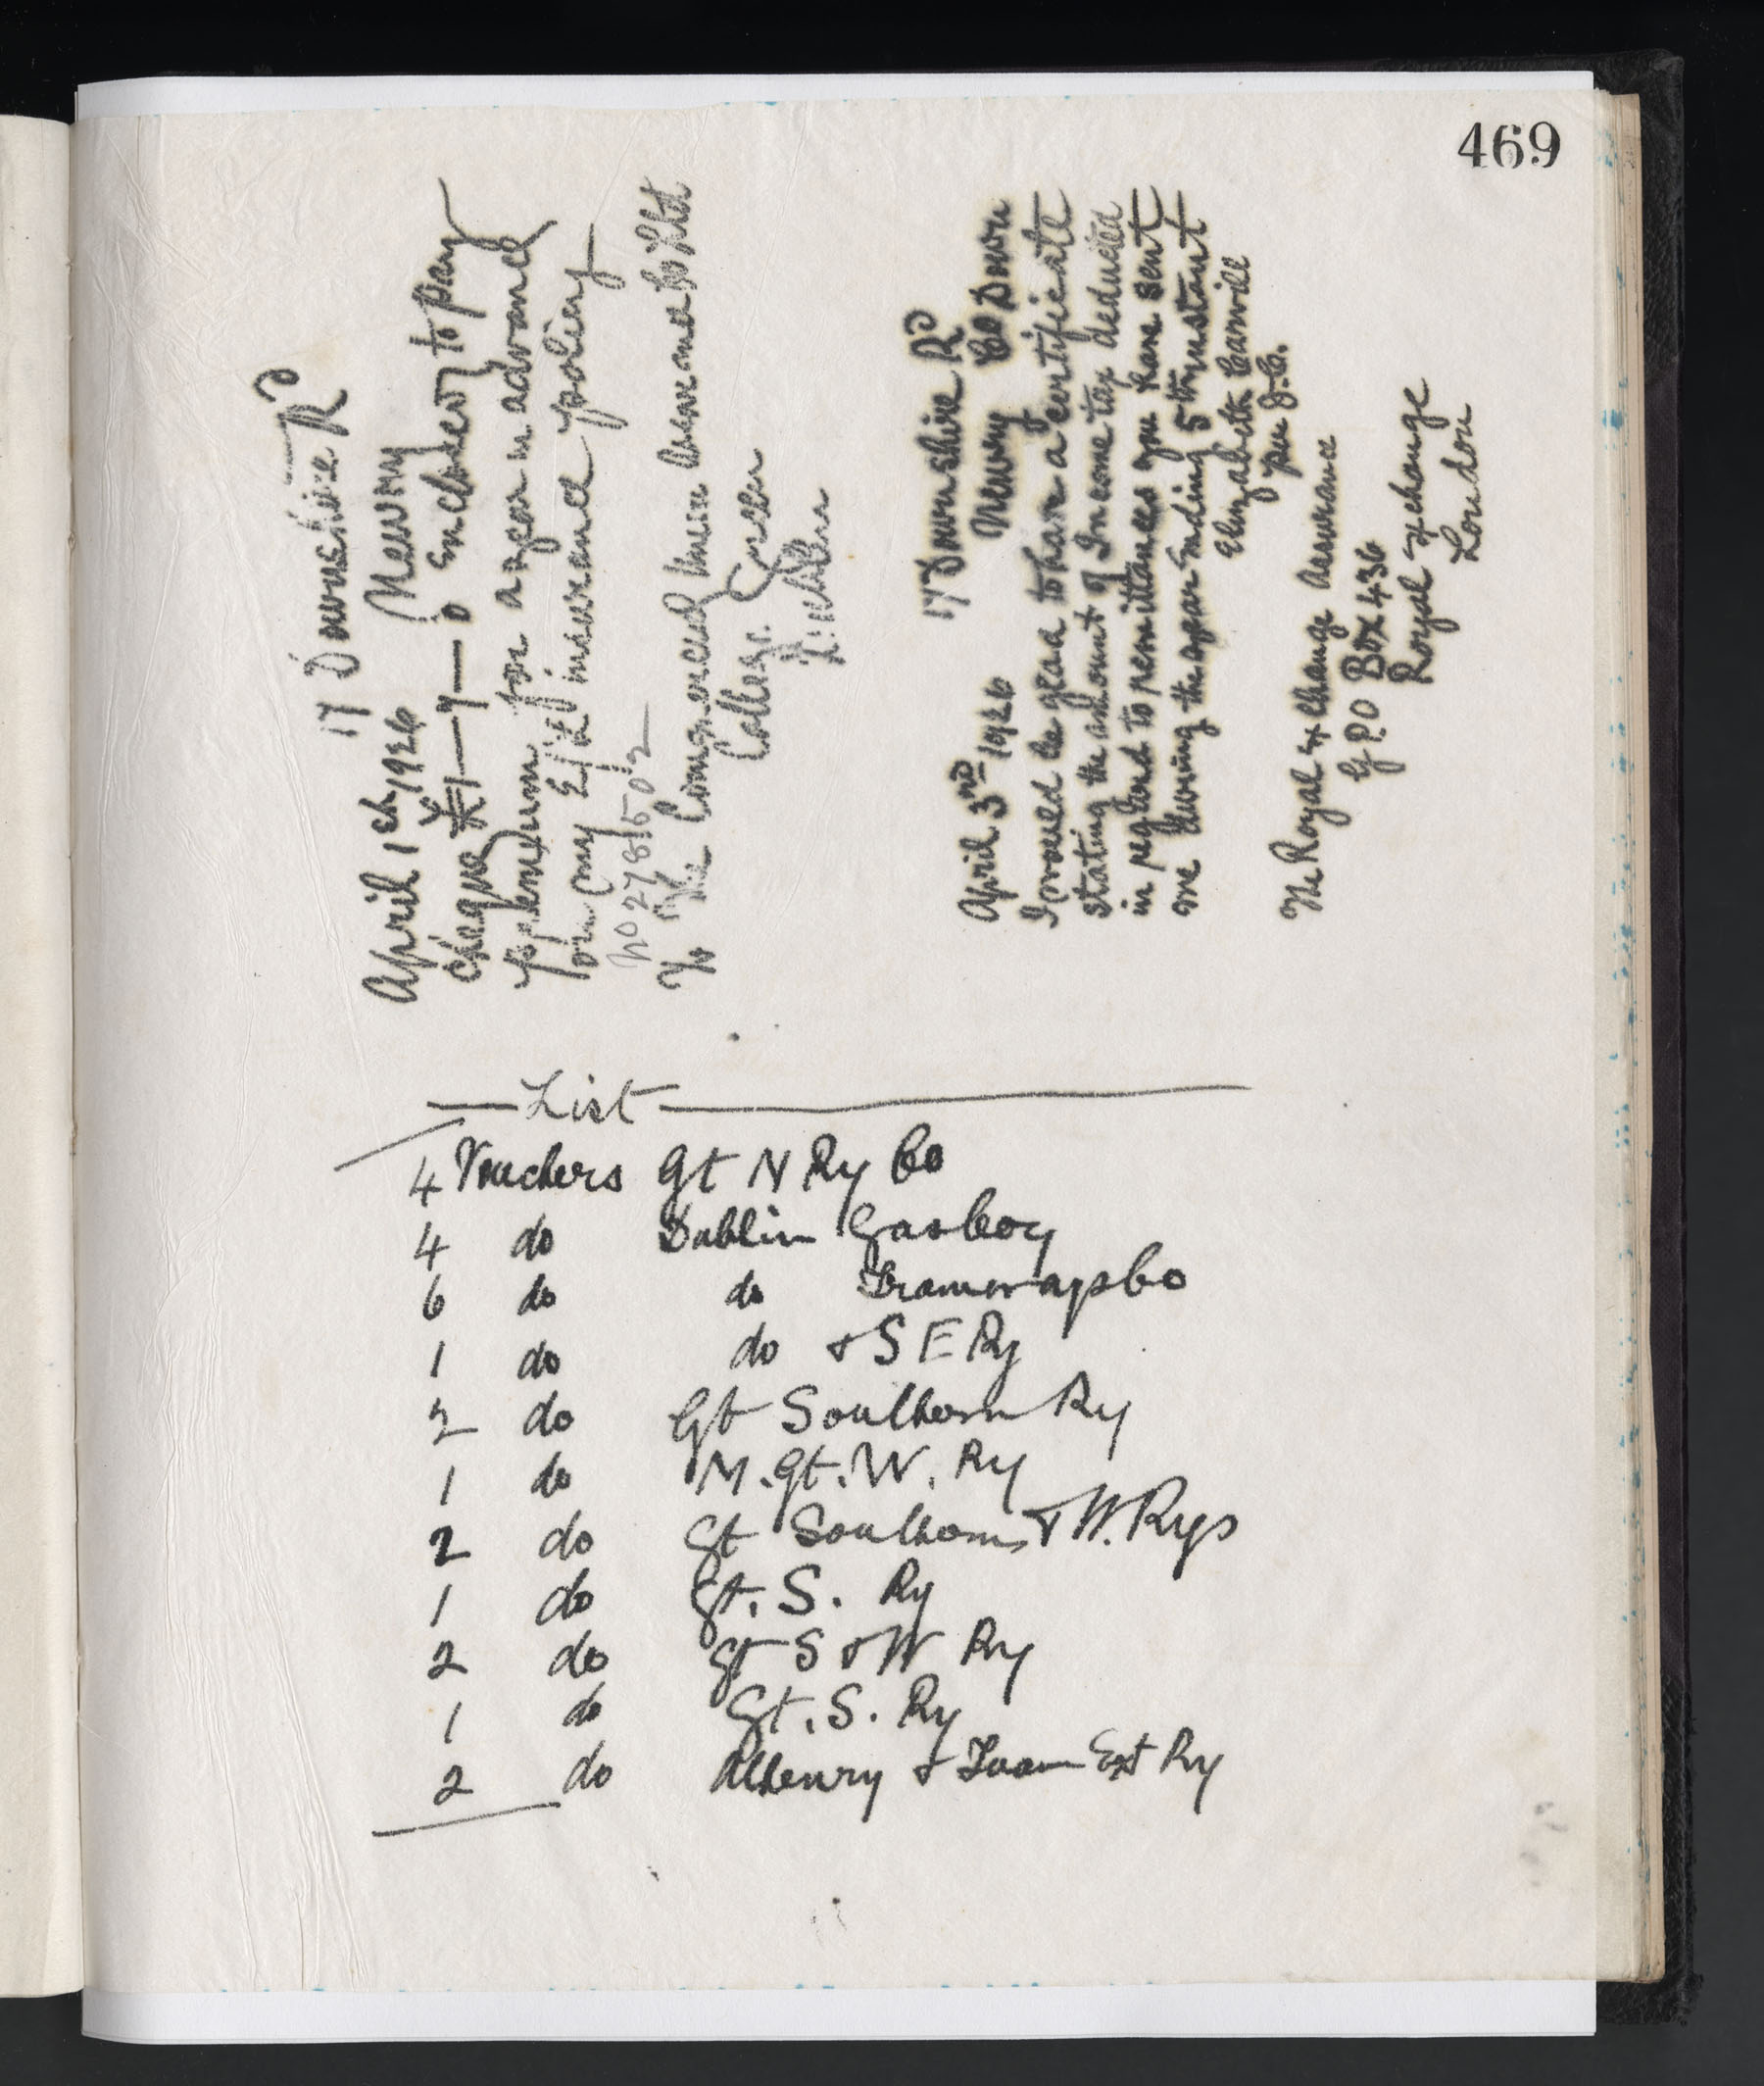 469
17 Downshire Rd
Newry
April 1st 1926
Cheque £1—7—0 enclosed to pay
premium for a year in advance
on my E/L insurance policy
No 2781502
To The Commercial Union Assurance Co Ltd
College Green
Dublin
17 Downshire Rd
Newry Co Down
April 3rd 1926
I would be glad to have a certificate
stating the amount of Income tax deducted
in regard to remittances you have sent
me during the year ending 5th instant
Elizabeth
per J.C.
The Royal Exchange Assurance
G P.O Box 436
Royal Exchange
London
List
4 Vouchers Gt N Ry Co
4 do Dublin Gas Coy
6 do do Tramways Co
1 do do & S E Ry
2 do Gt Southern Ry
1 do M. Gt. W. Ry
2 do Gt Southern & W. Rys
1 do Gt. S. Ry
2 do Gt S & W Ry
1 do Gt. S. Ry
2 do Athenry & Tuam Ext Ry